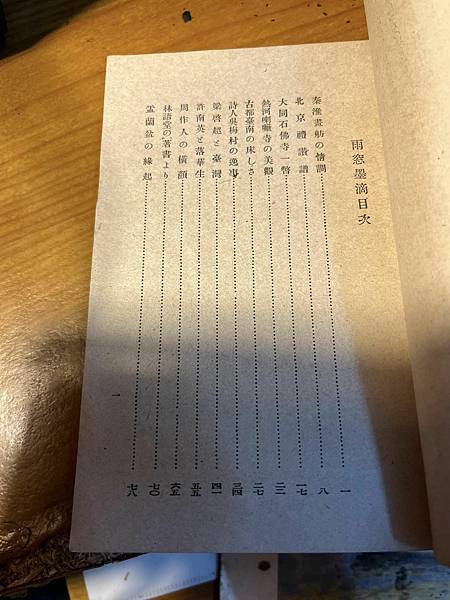 雨窓墨滴目次
秦淮畫舫の情調……一
北京禮讃譜……八
大同石佛寺一瞥……一七
熱河喇嘛寺の美觀……二二
古都臺南の床しさ……二七
詩人吳梅村の逸事……三四
梁啓超と臺灣……四一
許南英と落華生……五五
周作人の橫顏……六五
林語堂の著書より……七〇
盂蘭盆の緣起……七八
一